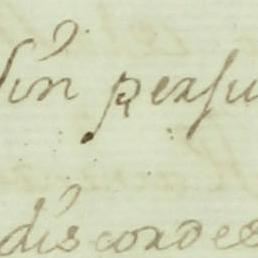 Sin persu
discordes